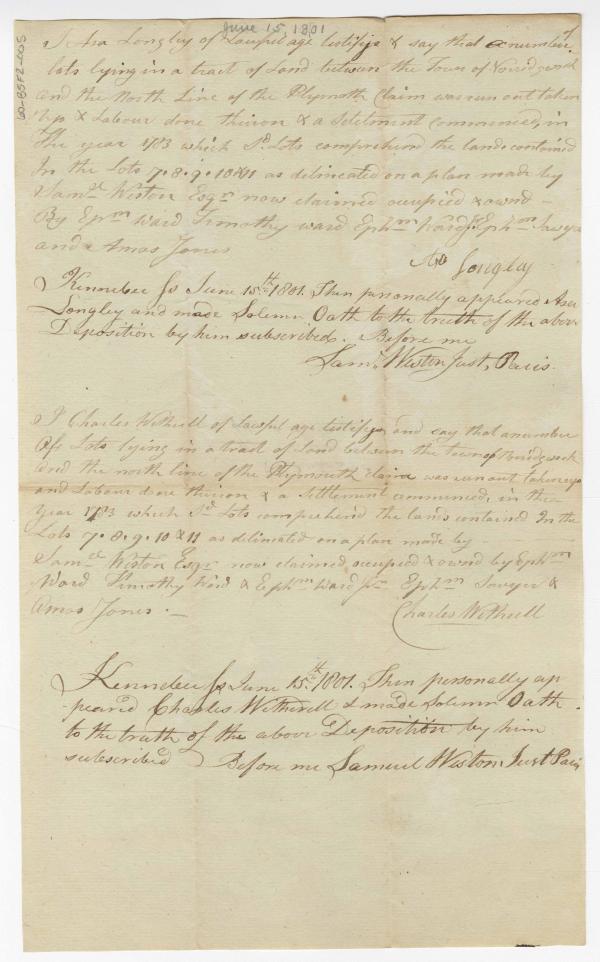 June 15, 1801
I Asa Longley of Lawful age testifye & say that a number of
lots lying in a tract of Land between the Town of Norridgwock
and the North Line of the Plymouth Claim was run out taken
up & Labour done thereon & a Setelment commenced, in
The year 1783 which Sd Lots comprehend the lands contained
In the Lots 7. 8. 9. 10 & 11 as delineated on a plan made by
Saml Weston Esqr now claimed occupied & ownd -
By Ephm Ward Timothy ward Ephm Ward Jr Ephm Sawyer
and Amos Jones
Asa Longley
Kennebec Ss June 15th 1801. Then personally appeared Asa
Longley and made Solemn Oath to the truth of the above
Deposition by him subscribed. Before me
Saml Weston Just, Pacis.
I Charles Witherell of Lawful age testifye and say that a number
Of Lots lying in a tract of Land between the town of Noridgwock
and the north line of the Plymouth Claim was run out taken up
and Labour done thereon & a Settlement commenced, in the
year 1783 which Sd Lots comprehend the lands contained In the
Lots 7. 8. 9. 10 & 11 as delineated on a plan made by -
Saml Weston Esqr now claimed occupied & ownd by Ephm
Ward Timothy Ward & Ephm Ward Jnr Ephm Sawyer &
Amos Jones. -
Charles Witherell
Kennebec Ss June 15th 1801. Then personally ap
-peared Charles Witherell & made Solemn Oath
to the truth of the above Deposition by him
subscribed Before me Samuel Weston Just Pacis